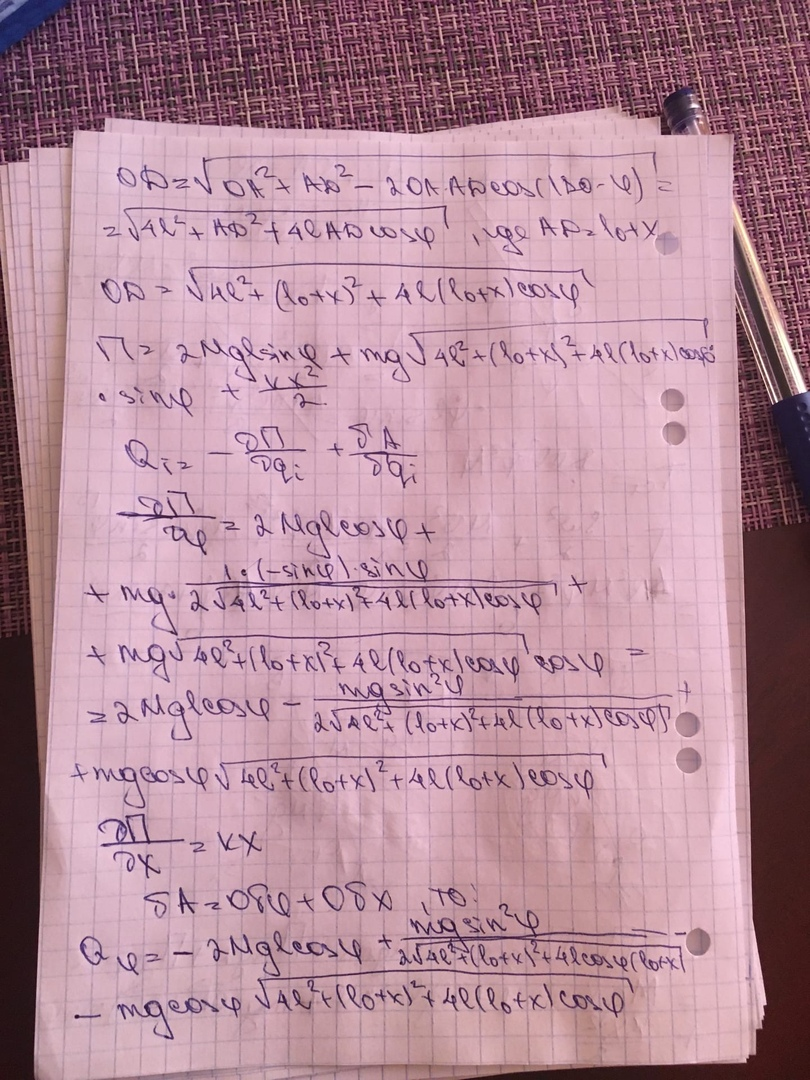 OD = √(OA² + AD² − 2OA·AD cos(180−φ)) =
= √(4l² + AD² + 4lAD cosφ) , где AD = l₀+x
OD = √(4l² + (l₀+x)² + 4l(l₀+x)cosφ)
П = 2Mglsinφ + mg√(4l² + (l₀+x)² + 4l(l₀+x)cosφ)
· sinφ + kx²/2
Qᵢ = −∂П/∂qᵢ + δA/δqᵢ
∂П/∂φ = 2Mglcosφ +
+ mg· 1·(−sinφ)·sinφ / 2√(4l²+(l₀+x)²+4l(l₀+x)cosφ) +
+ mg√(4l²+(l₀+x)²+4l(l₀+x)cosφ) cosφ =
= 2Mglcosφ − mgsin²φ / 2√(4l²+(l₀+x)²+4l(l₀+x)cosφ) +
+ mgcosφ √(4l²+(l₀+x)²+4l(l₀+x)cosφ)
∂П/∂x = kx
δA = 0δφ + 0δx , то:
Qφ = − 2Mglcosφ + mgsin²φ / 2√(4l²+(l₀+x)²+4lcosφ(l₀+x)) −
− mgcosφ √(4l²+(l₀+x)²+4l(l₀+x)cosφ)